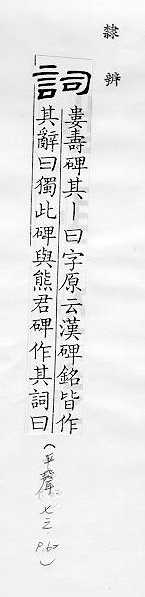 隸辨
詞
婁壽碑其丨曰字原云漢碑銘皆作
其辭曰獨此碑與熊君碑作其詞曰
(平聲 七三 P.67)